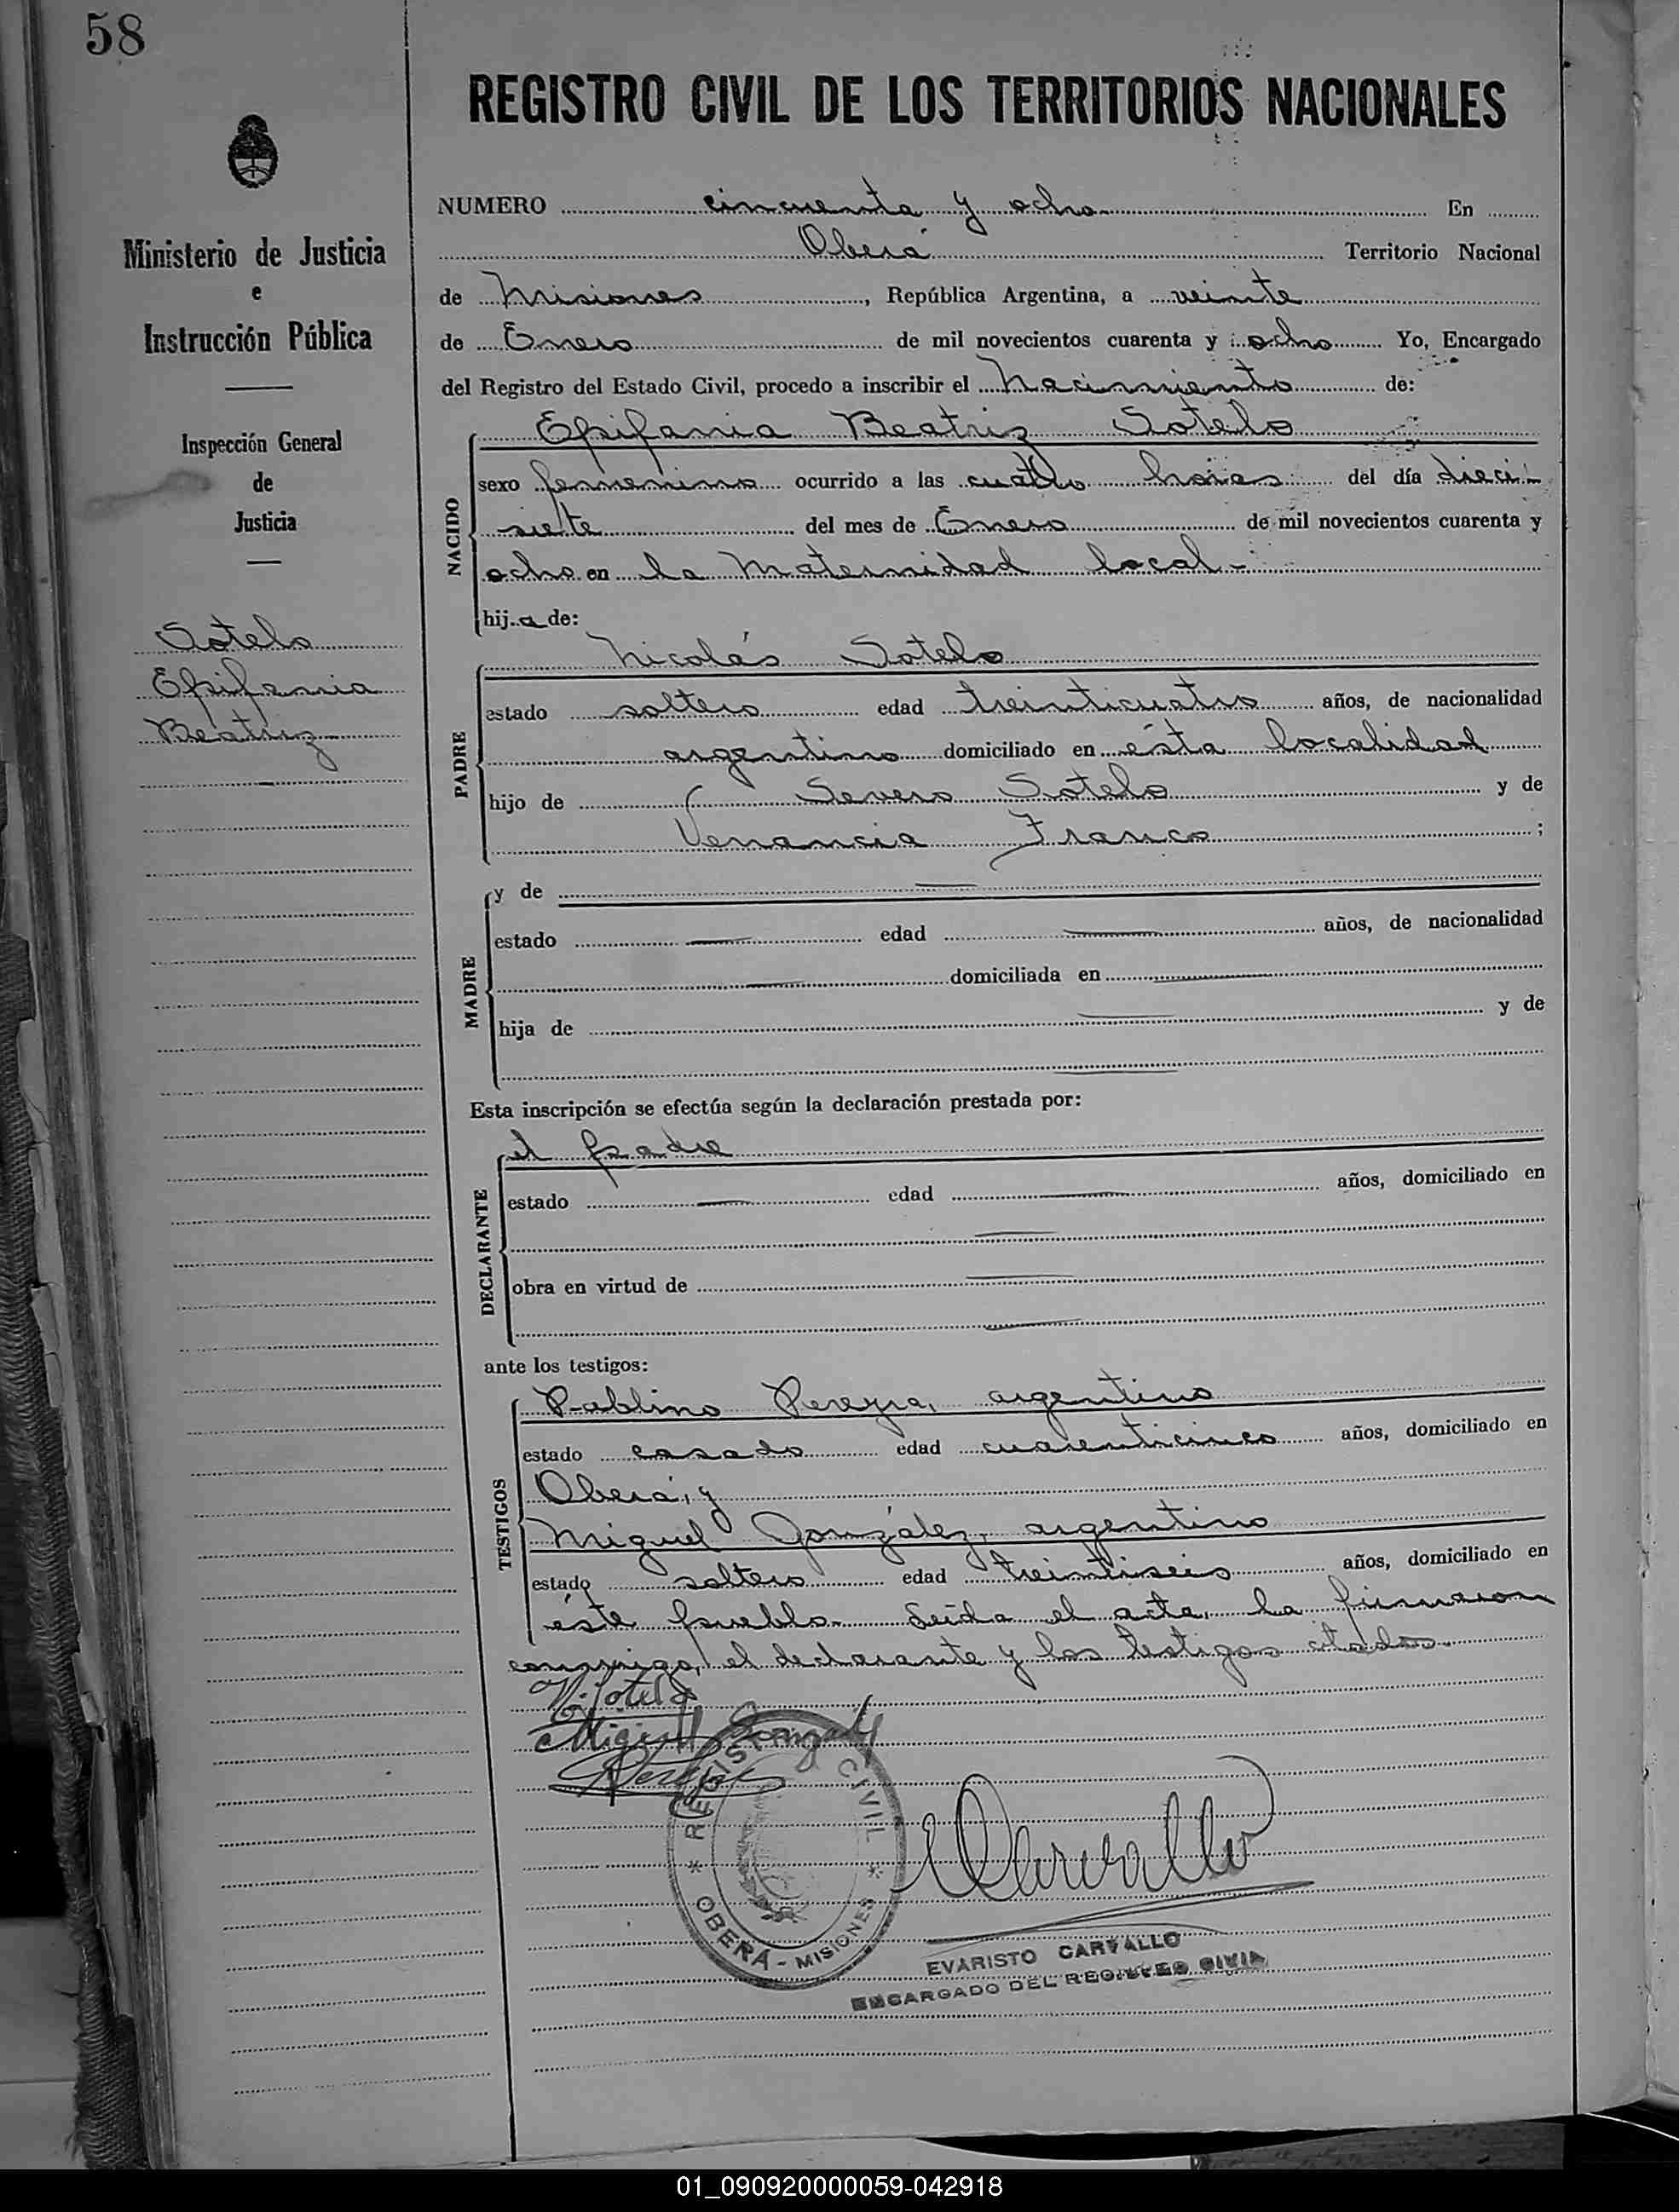 58
REGISTRO CIVIL DE LOS TERRITORIOS NACIONALES
Ministerio de Justicia
e
Instrucción Pública
Inspección General
de
Justicia
Sotelo
Epifania
Beatriz
NUMERO cincuenta y ocho En
Oberá Territorio Nacional
de Misiones, República Argentina, a veinte
de Enero de mil novecientos cuarenta y ocho Yo, Encargado
del Registro del Estado Civil, procedo a inscribir el Nacimiento de:
Epifania Beatriz Sotelo
NACIDO
sexo femenino ocurrido a las cuatro horas del día dieci-
siete del mes de Enero de mil novecientos cuarenta y
ocho en la Maternidad local.-
hija de:
Nicolás Sotelo
PADRE
estado soltero edad treinticuatro años, de nacionalidad
argentino domiciliado en ésta localidad
hijo de Severo Sotelo y de
Venancia Franco ;
MADRE
y de
estado edad años, de nacionalidad
domiciliada en
hija de y de
Esta inscripción se efectúa según la declaración prestada por:
el padre
DECLARANTE
estado edad años, domiciliado en
obra en virtud de
ante los testigos:
TESTIGOS
Pablino Pereyra, argentino
estado casado edad cuarenticinco años, domiciliado en
Oberá, y
Miguel González, argentino
estado soltero edad treintiseis años, domiciliado en
éste pueblo.- Leída el acta, la firmaron
conmigo, el declarante y los testigos citados.
N. Sotelo
Miguel Gonzalez
REGISTRO CIVIL
OBERÁ - MISIONES
Carvallo
EVARISTO CARVALLO
ENCARGADO DEL REGISTRO CIVIL
01_090920000059-042918